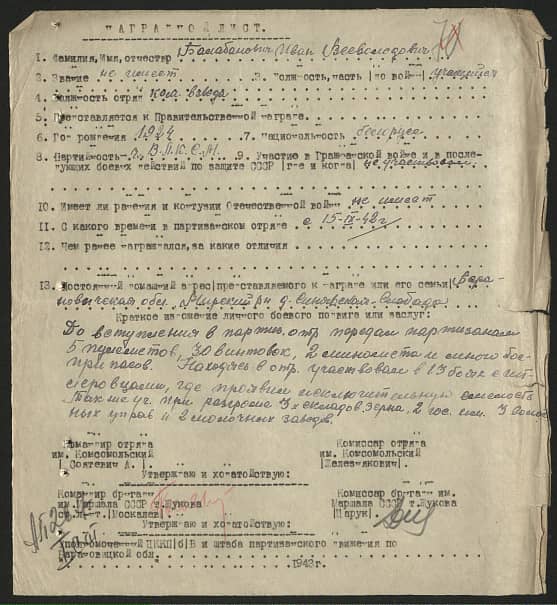 НАГРАДНОЙ ЛИСТ.
1. Фамилия, Имя, отчество Балабанович Иван Всеволодович
2. Звание не имеет 3. Должность, часть /до войны/ учащийся
4. Должность отряд ком. взвода
5. Представляется к Правительственной награде
6. Год рождения 1924 7. Национальность белорус
8. Партийность ч. В.Л.К.С.М. 9. Участие в Гражданской войне и в после-
дующих боевых действий по защите СССР /где и когда/ не участвовал
10. Имеет ли ранения и контузии Отечественной войн не имеет
11. С какого времени в партизанском отряде с 15-IX-42г
12. Чем ранее награждался, за какие отличия
13. Постоянный домашний адрес /представляемого к награде или его семьи/ Бара-
новичская обл. Мирский р-н д. Синявская-Слобода
Краткое изложение личного боевого подвига или заслуг:
До вступления в партиз. отр. передал партизанам
5 пулеметов, 30 винтовок, 2 миномета и много бое-
припасов. Находясь в отр. участвовал в 13 боях с гит-
леровцами, где проявил исключительную смелость
Также уч. при разгроме 3х складов зерна, 2 гос. им. 3
ных управ и 2 молочных заводов.
Командир отряда Комиссар отряда
им. Комсомольский им. Комсомольский
/ Соятевич А. / / Железнякович /.
Утверждаю и ходатойствую:
Командир бригады Комиссар бригады им.
им. Маршала СССР т. Жукова Маршала СССР т. Жукова
/Москалев/ /Шарук/
Утверждаю и ходатойствую:
Уполномоченный ЦККП/б/Б и штаба партизанского движения по
Барановицкой обл.
1943г.